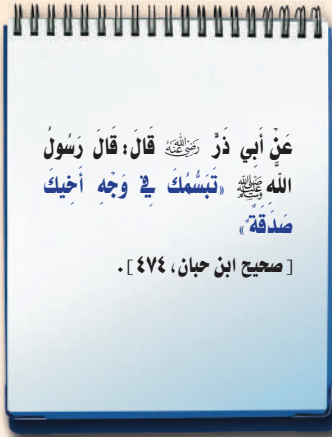 عَنْ أَبِي ذَرٍّ رَضِيَ اللَّهُ عَنْهُ قَالَ: قَالَ رَسُولُ
اللَّهِ ﷺ «تَبَسُّمُكَ فِي وَجْهِ أَخِيكَ
صَدَقَةٌ»
[صحيح ابن حبان، ٤٧٤].